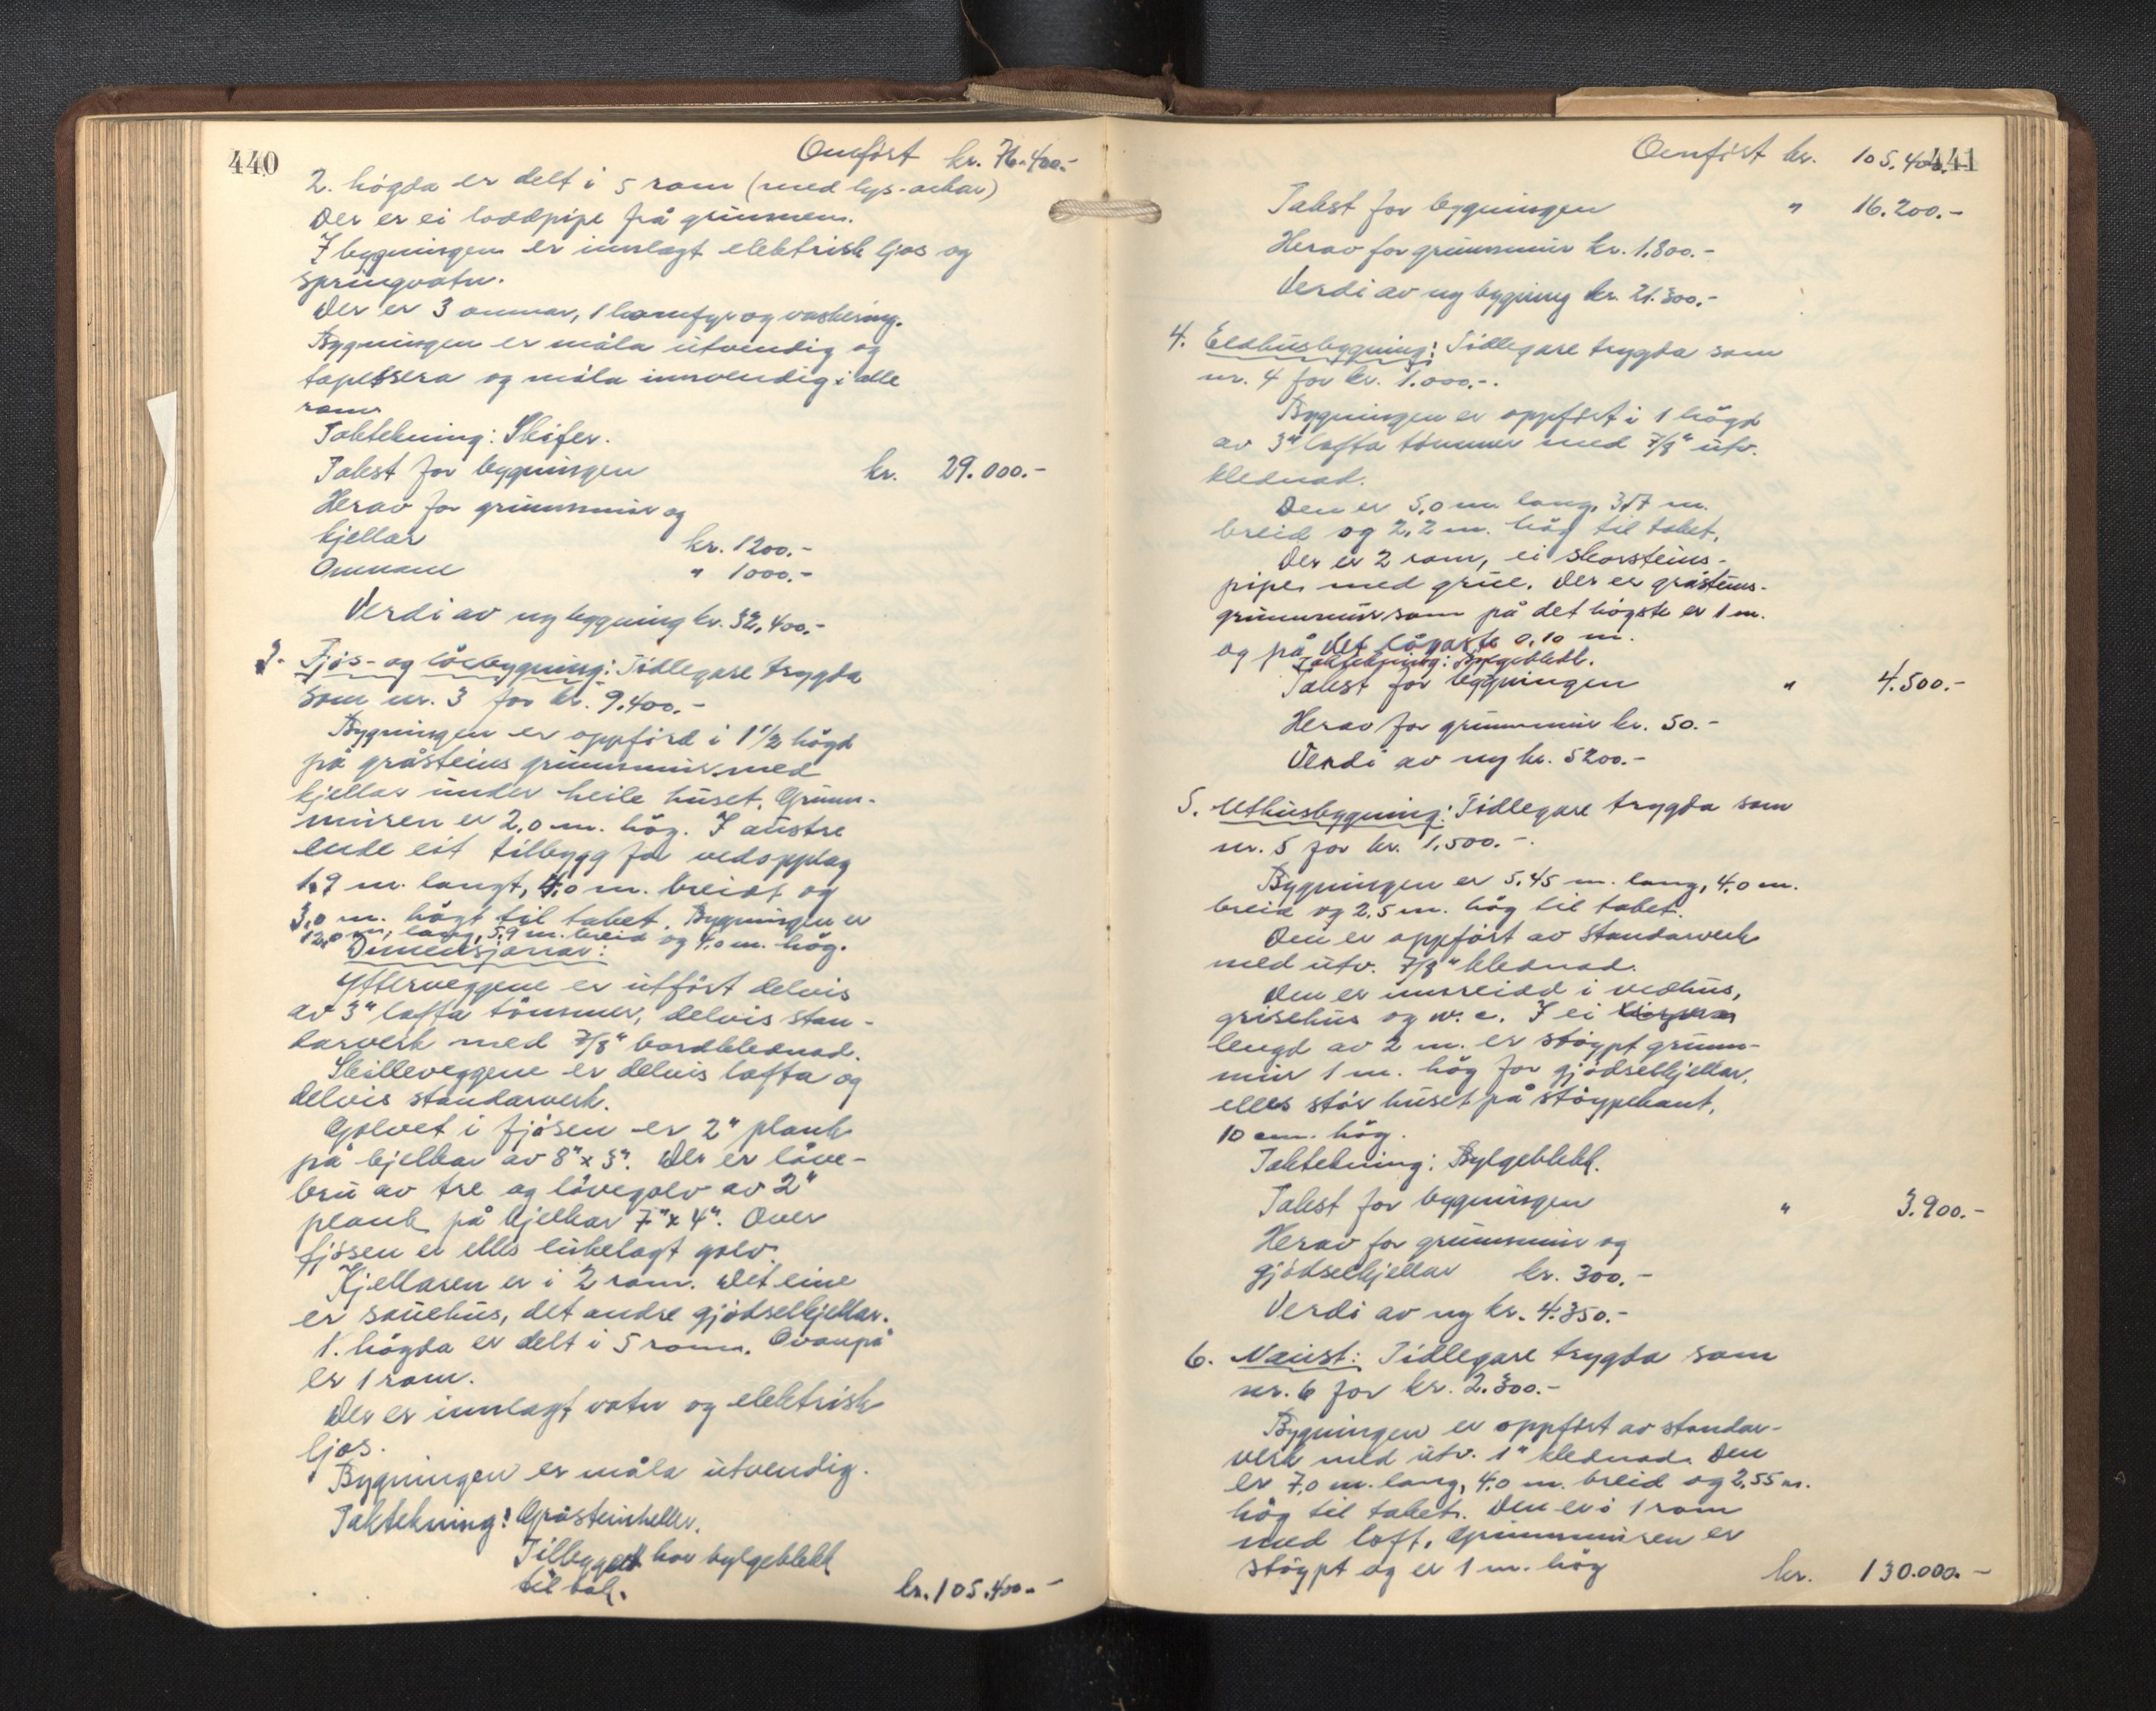 440
Omført kr. 76.400.-
2. högda er delt i 5 rom (med lys-arkar)
Der er ei loddpipe frå grunnen.
I bygningen er innlagt elektrisk ljos og
springvatn.
Der er 3 omnar, 1 komfyr og vaskering.
Bygningen er måla utvendig og
tapetsera og måla innvendig i alle
rom.
Taktekning: Skifer.
Takst for bygningen kr. 29.000.-
Herav for grunnmur og
kjellar kr. 1200.-
Omnane " 1000.-
Verdi av ny bygning kr. 32.400.-
3. Fjøs- og löebygning: Tidlegare trygda
som nr. 3 for kr. 9.400.-
Bygningen er oppförd i 1 1/2 högd
på gråsteins grunnmur med
kjellar under heile huset. Grunn-
muren er 2,0 m. hög. I austre
ende eit tilbygg for vedopplag
1,9 m. langt, 4,0 m. breidt og
3,0 m. högt til taket. Bygningen er
12,0 m. lang, 5,9 m. breid og 4,0 m. hög.
Dimensjonar:
Ytterveggene er utfört delvis
av 3" lafta tömmer, delvis stan-
darverk med 7/8" bordklednad.
Skilleveggene er delvis lafta og
delvis standarverk.
Golvet i fjösen er 2" plank
på bjelkar av 8" x 5". Der er låve-
bru av tre og låvegolv av 2"
plank på bjelkar 7" x 4". Over
fjösen er elles lukelagt golv.
Kjellaren er i 2 rom. Det eine
er sauehus, det andre gjödselkjellar.
1. högda er delt i 5 rom. Ovanpå
er 1 rom.
Der er innlagt vatn og elektrisk
ljos.
Bygningen er måla utvendig.
Taktekning: Gråsteinheller.
Tilbygget har bylgeblekk
til tak.
kr. 105.400.-
441
Omført kr. 105.400.-
Takst for bygningen " 16.200.-
Herav for grunnmur kr. 1.800.-
Verdi av ny bygning kr. 21.300.-
4. Eldhusbygning: Tidlegare trygda som
nr. 4 for kr. 1.000.-.
Bygningen er oppfört i 1 högd
av 3" lafta tömmer med 7/8" utv.
klednad.
Den er 5,0 m. lang, 3,7 m.
breid og 2,2 m. hög til taket.
Der er 2 rom, ei skorsteins-
pipe med grue. Der er gråsteins-
grunnmur som på det högste er 1 m.
og på det lågaste 0,10 m.
Taktekning: Bylgeblekk.
Takst for bygningen " 4.500.-
Herav for grunnmur kr. 50.-
Verdi av ny kr. 5200.-
5. Uthusbygning: Tidlegare trygda som
nr. 5 for kr. 1.500.-.
Bygningen er 5,45 m. lang, 4,0 m.
breid og 2,5 m. hög til taket.
Den er oppfört av standarverk
med utv. 7/8" klednad.
Den er innreidd i vedhus,
grisehus og w.c. I ei
lengd av 2 m. er stöypt grunn-
mur 1 m. hög for gjödselkjellar,
elles står huset på stöypekant,
10 cm. hög.
Taktekning: Bylgeblekk.
Takst for bygningen " 3.900.-
Herav for grunnmur og
gjödselkjellar kr. 300.-
Verdi av ny kr. 4.350.-
6. Naust: Tidlegare trygda som
nr. 6 for kr. 2.300.-
Bygningen er oppfört av standar-
verk med utv. 1" klednad. Den
er 7,0 m. lang, 4,0 m. breid og 2,55 m.
hög til taket. Den er i 1 rom
med loft. Grunnmuren er
stöypt og er 1 m. hög
kr. 130.000.-